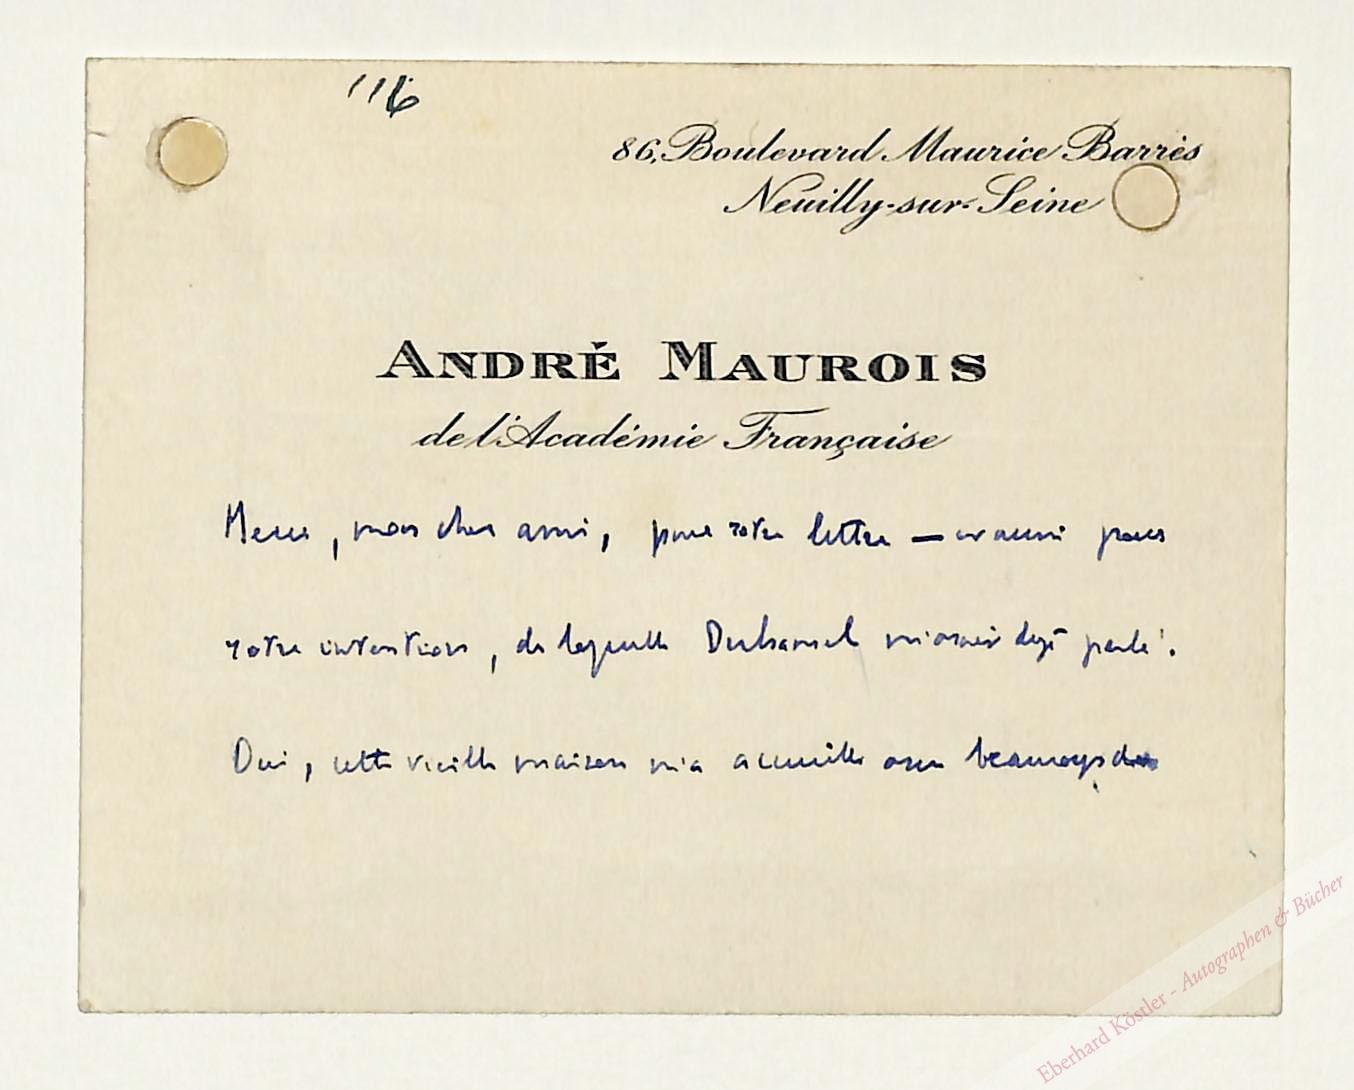 116
86, Boulevard Maurice Barrès
Neuilly-sur-Seine
ANDRÉ MAUROIS
de l'Académie Française
Merci, mon cher ami, pour votre lettre — et aussi pour
votre intention, de laquelle Duhamel m'avait déjà parlé.
Oui, cette vieille maison m'a accueilli avec beaucoup de
Eberhard Köstler - Autographen & Bücher